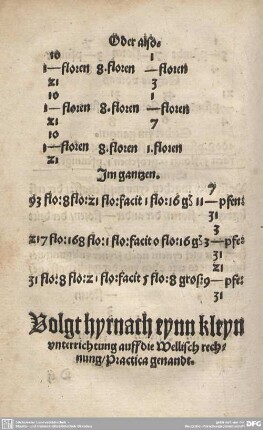 Oder also.
10 1
1—floren 8.floren —floren
21 3
10 1
1—floren 8.floren —floren
21 7
10
1—floren 8.floren 1.floren
21
Im gantzen.
7
93 flo:8 flo:21 flo:facit 1 flo:16 gs 11—pfen:
31
3
217 flo:168 flo:1 flo:facit 0 flo:16 gs 3—pfe:
31
3
31 flo:8 flo:21 flo:facit 5 flo:8 gros:9—pfe:
31
Volgt hyrnach eynn kleyn
vnterrichtung auff die Wellisch rech-
nung/Practica genandt.